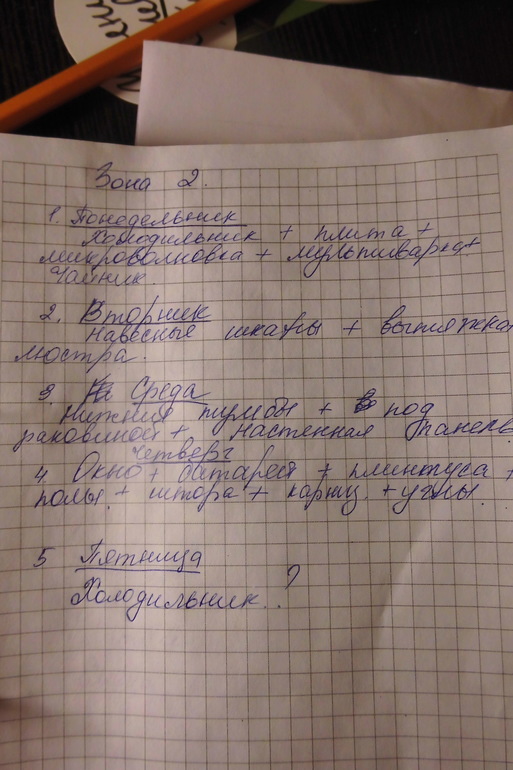 Зона 2.
1. Понедельник
Холодильник + плита +
микроволновка + мультиварка+
чайник.
2. Вторник
навесные шкафы + вытяжка
люстра.
3. Среда
Нижние тумбы + под
раковиной + настенная панель
Четверг
4 Окно + батарея + плинтуса +
полы + штора + карниз. + углы.
5 Пятница
Холодильник..?